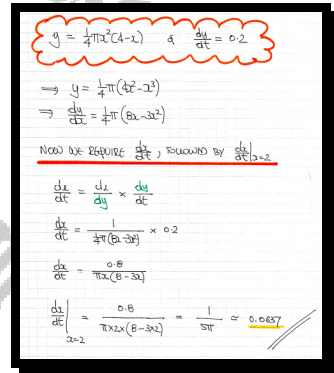 y = ¼πx²(4-x) & dy/dt = 0.2
⇒ y = ¼π(4x²-x³)
⇒ dy/dx = ¼π(8x-3x²)
NOW WE REQUIRE dx/dt, FOLLOWED BY dx/dt|x=2
dx/dt = dx/dy × dy/dt
dx/dt = 1/(¼π(8x-3x²)) × 0.2
dx/dt = 0.8/(πx(8-3x))
dx/dt|x=2 = 0.8/(π×2×(8-3×2)) = 1/5π ≈ 0.0637